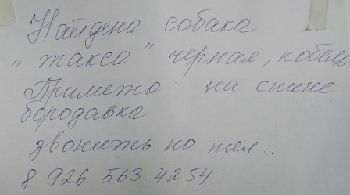 Найдена собака
"такса" черная, кобель
Примета на спине
бородавка
звонить по тел.
8 926 563 4254